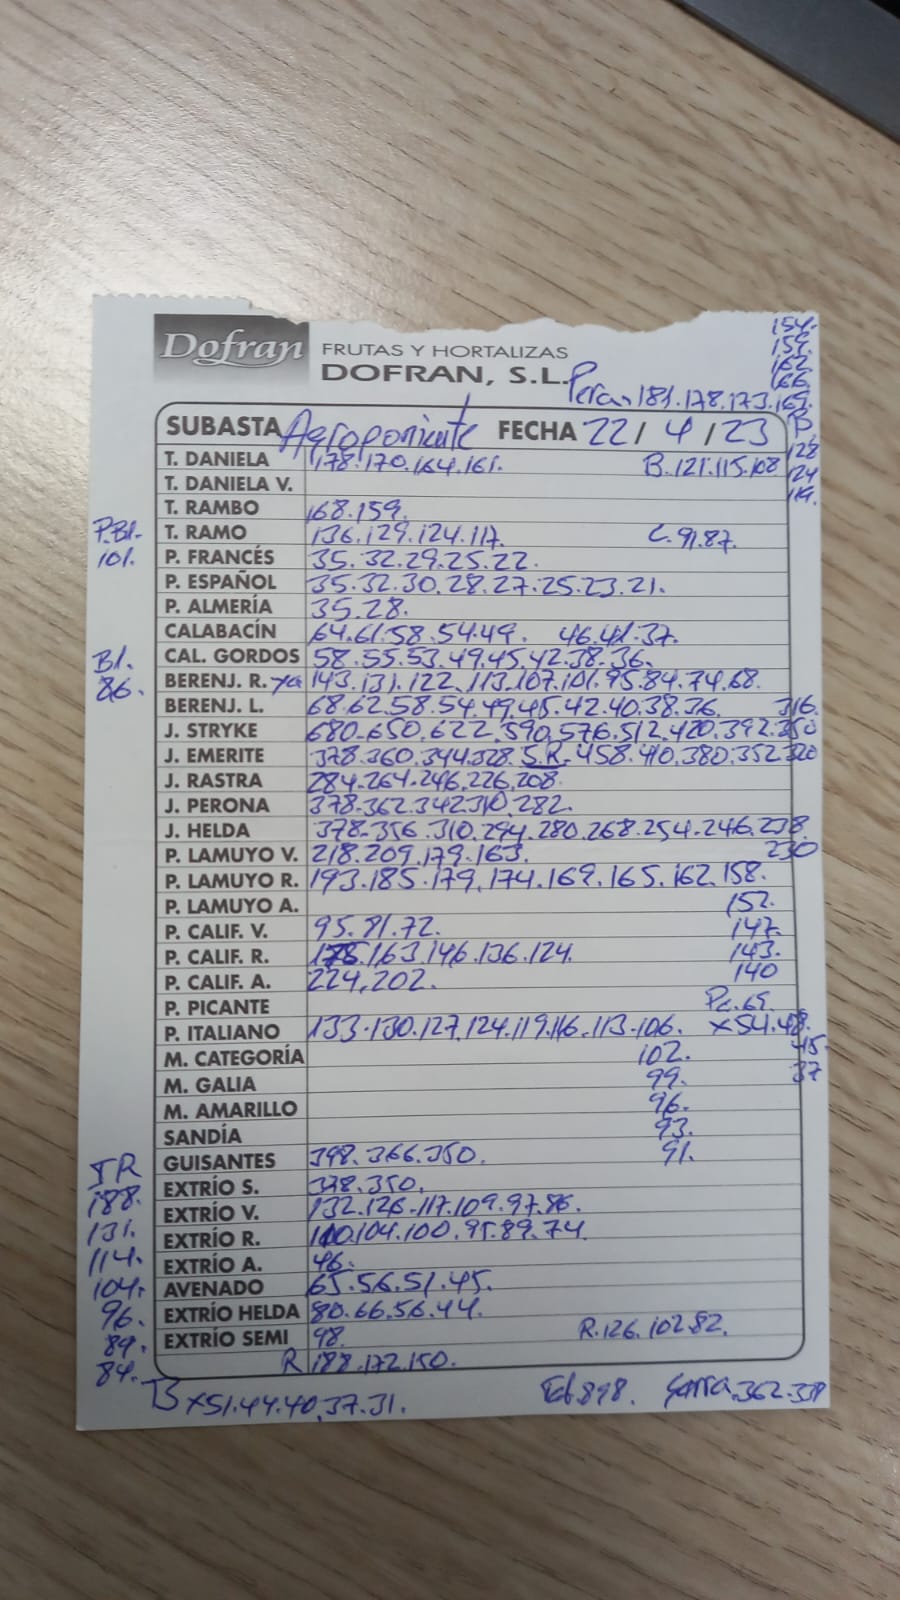 Dofran FRUTAS Y HORTALIZAS
DOFRAN, S.L.
154.
159.
162.
166.
Peran 181.178.173.169.
SUBASTA Agroponiente FECHA 22/4/23
B.
128
124
119.
T. DANIELA 178.170.164.161. B.121.115.108
T. DANIELA V.
T. RAMBO 168.159.
P.Bl.
101.
T. RAMO 136.129.124.117. C.91.87.
P. FRANCÉS 35.32.29.25.22.
P. ESPAÑOL 35.32.30.28.27.25.23.21.
P. ALMERÍA 35.28.
CALABACÍN 64.61.58.54.49. 46.41.37.
Bl.
86.
CAL. GORDOS 58.55.53.49.45.42.38.36.
BERENJ. R. ya 143.131.122.113.107.101.95.84.74.68.
BERENJ. L. 68.62.58.54.49.45.42.40.38.36. 316.
J. STRYKE 680.650.622.590.576.512.420.392.350
J. EMERITE 378.360.344.328. S.R. 458.410.380.352.320
J. RASTRA 284.264.246.226.208.
J. PERONA 378.362.342.310.282.
J. HELDA 378.356.310.294.280.268.254.246.238.
230
P. LAMUYO V. 218.209.179.163.
P. LAMUYO R. 193.185.179.174.169.165.162.158.
P. LAMUYO A. 152.
P. CALIF. V. 95.81.72. 147.
P. CALIF. R. 175.163.146.136.124. 143.
P. CALIF. A. 224.202. 140
P. PICANTE Pc.65.
P. ITALIANO 133.130.127.124.119.116.113.106. x54.48.
45.
37
M. CATEGORÍA 102.
M. GALIA 99.
M. AMARILLO 96.
SANDÍA 93.
GUISANTES 398.366.350. 91.
EXTRÍO S. 378.350.
EXTRÍO V. 132.126.117.109.97.86.
EXTRÍO R. 110.104.100.95.89.74.
EXTRÍO A. 46.
AVENADO 65.56.51.45.
EXTRÍO HELDA 80.66.56.44.
EXTRÍO SEMI 98. R.126.102.82.
R 188.172.150.
IR
188.
131.
114.
104.
96.
89.
84.
B x51.44.40.37.31. 898. Garra.362.338